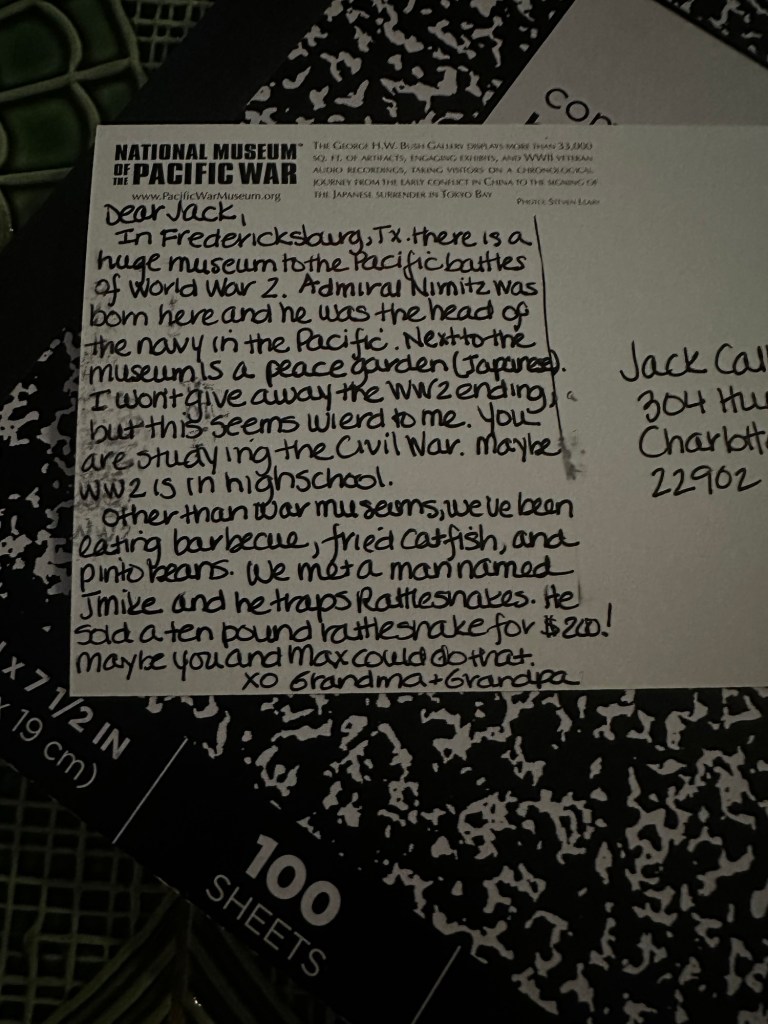 COM
NATIONAL MUSEUM
OF THE PACIFIC WAR
www.PacificWarMuseum.org
THE GEORGE H.W. BUSH GALLERY DISPLAYS MORE THAN 33,000
SQ. FT. OF ARTIFACTS, ENGAGING EXHIBITS, AND WWII VETERAN
AUDIO RECORDINGS, TAKING VISITORS ON A CHRONOLOGICAL
JOURNEY FROM THE EARLY CONFLICT IN CHINA TO THE SIGNING OF
THE JAPANESE SURRENDER IN TOKYO BAY
Dear Jack,
In Fredericksburg, Tx. there is a
huge museum to the Pacific battles
of World War 2. Admiral Nimitz was
born here and he was the head of
the navy in the Pacific. Next to the
museum is a peace garden (Japanese).
I won't give away the WW2 ending,
but this seems wierd to me. You
are studying the Civil War. Maybe
WW2 is in highschool.
Other than war museums, we've been
eating barbecue, fried catfish, and
pinto beans. We met a man named
Jmike and he traps Rattlesnakes. He
sold a ten pound rattlesnake for $200!
Maybe you and Max could do that.
XO Grandma + Grandpa
Jack Call
304 Hu
Charlott
22902
x 7 1/2 IN
x 19 cm)
100
SHEETS